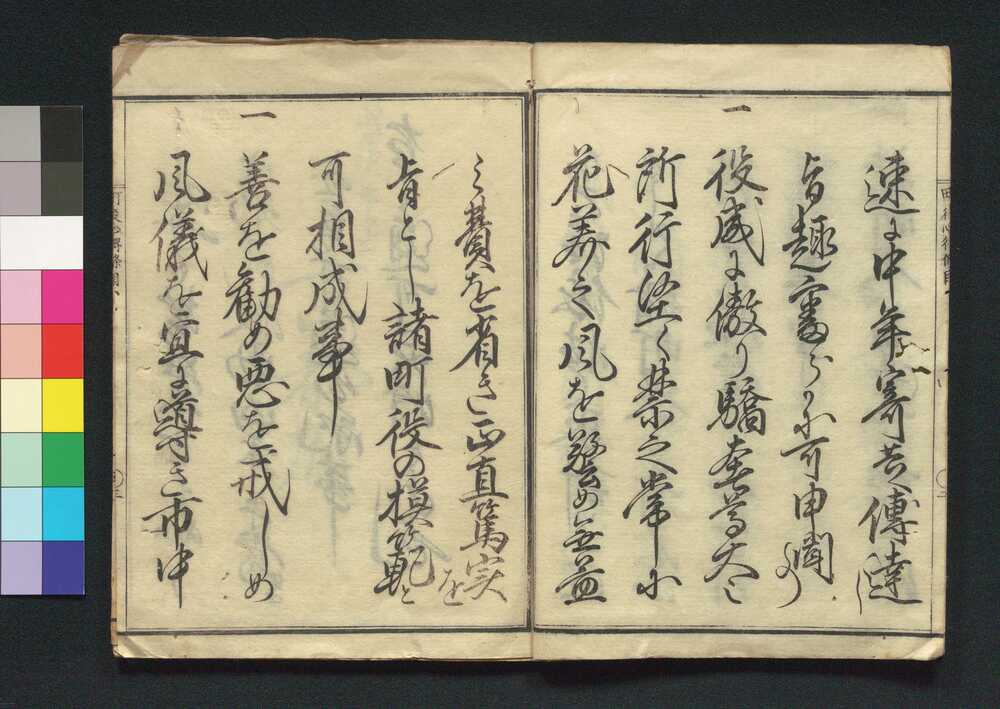 速に中年寄共へ傳達し
旨趣審らかに可申聞事
一
役威に傲り驕奢尊大之
所行堅く禁之常に
花美之風を警め無益
之費を省き正直篤実を
旨とし諸町役の模範と
可相成事
一
善を勧め悪を戒しめ
風儀を宜に導き市中